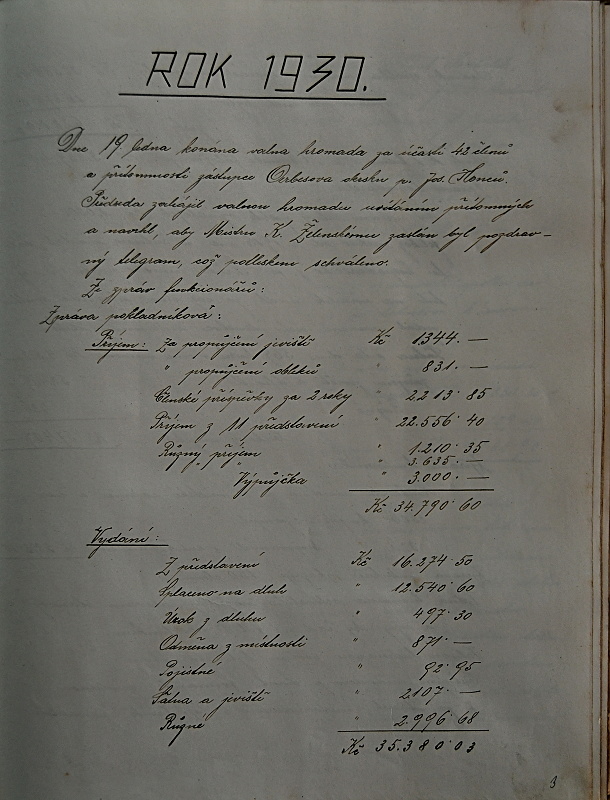 ROK 1930.
Dne 19 ledna konána valna hromada za účasti 42 členů
a přítomnosti zástupce Oerbesova okrsku p. Jos. Honců.
Předseda zahájil valnou hromadu uvítáním přítomných
a navrhl, aby Mistru K. Želenskému zaslán byl pozdrav-
ný telegram, což potleskem schváleno.
Ze zpráv funkcionářů:
Zpráva pokladníková:
Příjem: Za propůjčení jeviště Kč 1344.—
" propůjčení obleků " 831.—
Členské příspěvky za 2 roky " 2213·85
Příjem z 11 představení " 22.556·40
Různý příjem " 1.210·35
" " " 3.635.—
Výpůjčka " 3.000.—
Kč 34.790·60
Vydání:
Z představení Kč 16.274·50
Splaceno na dluh " 12.540·60
Úrok z dluhu " 497·30
Odměna z místnosti " 871·—
Pojistné " 92·95
Šatna a jeviště " 2107·—
Různé " 2.996·68
Kč 35.380·03
3